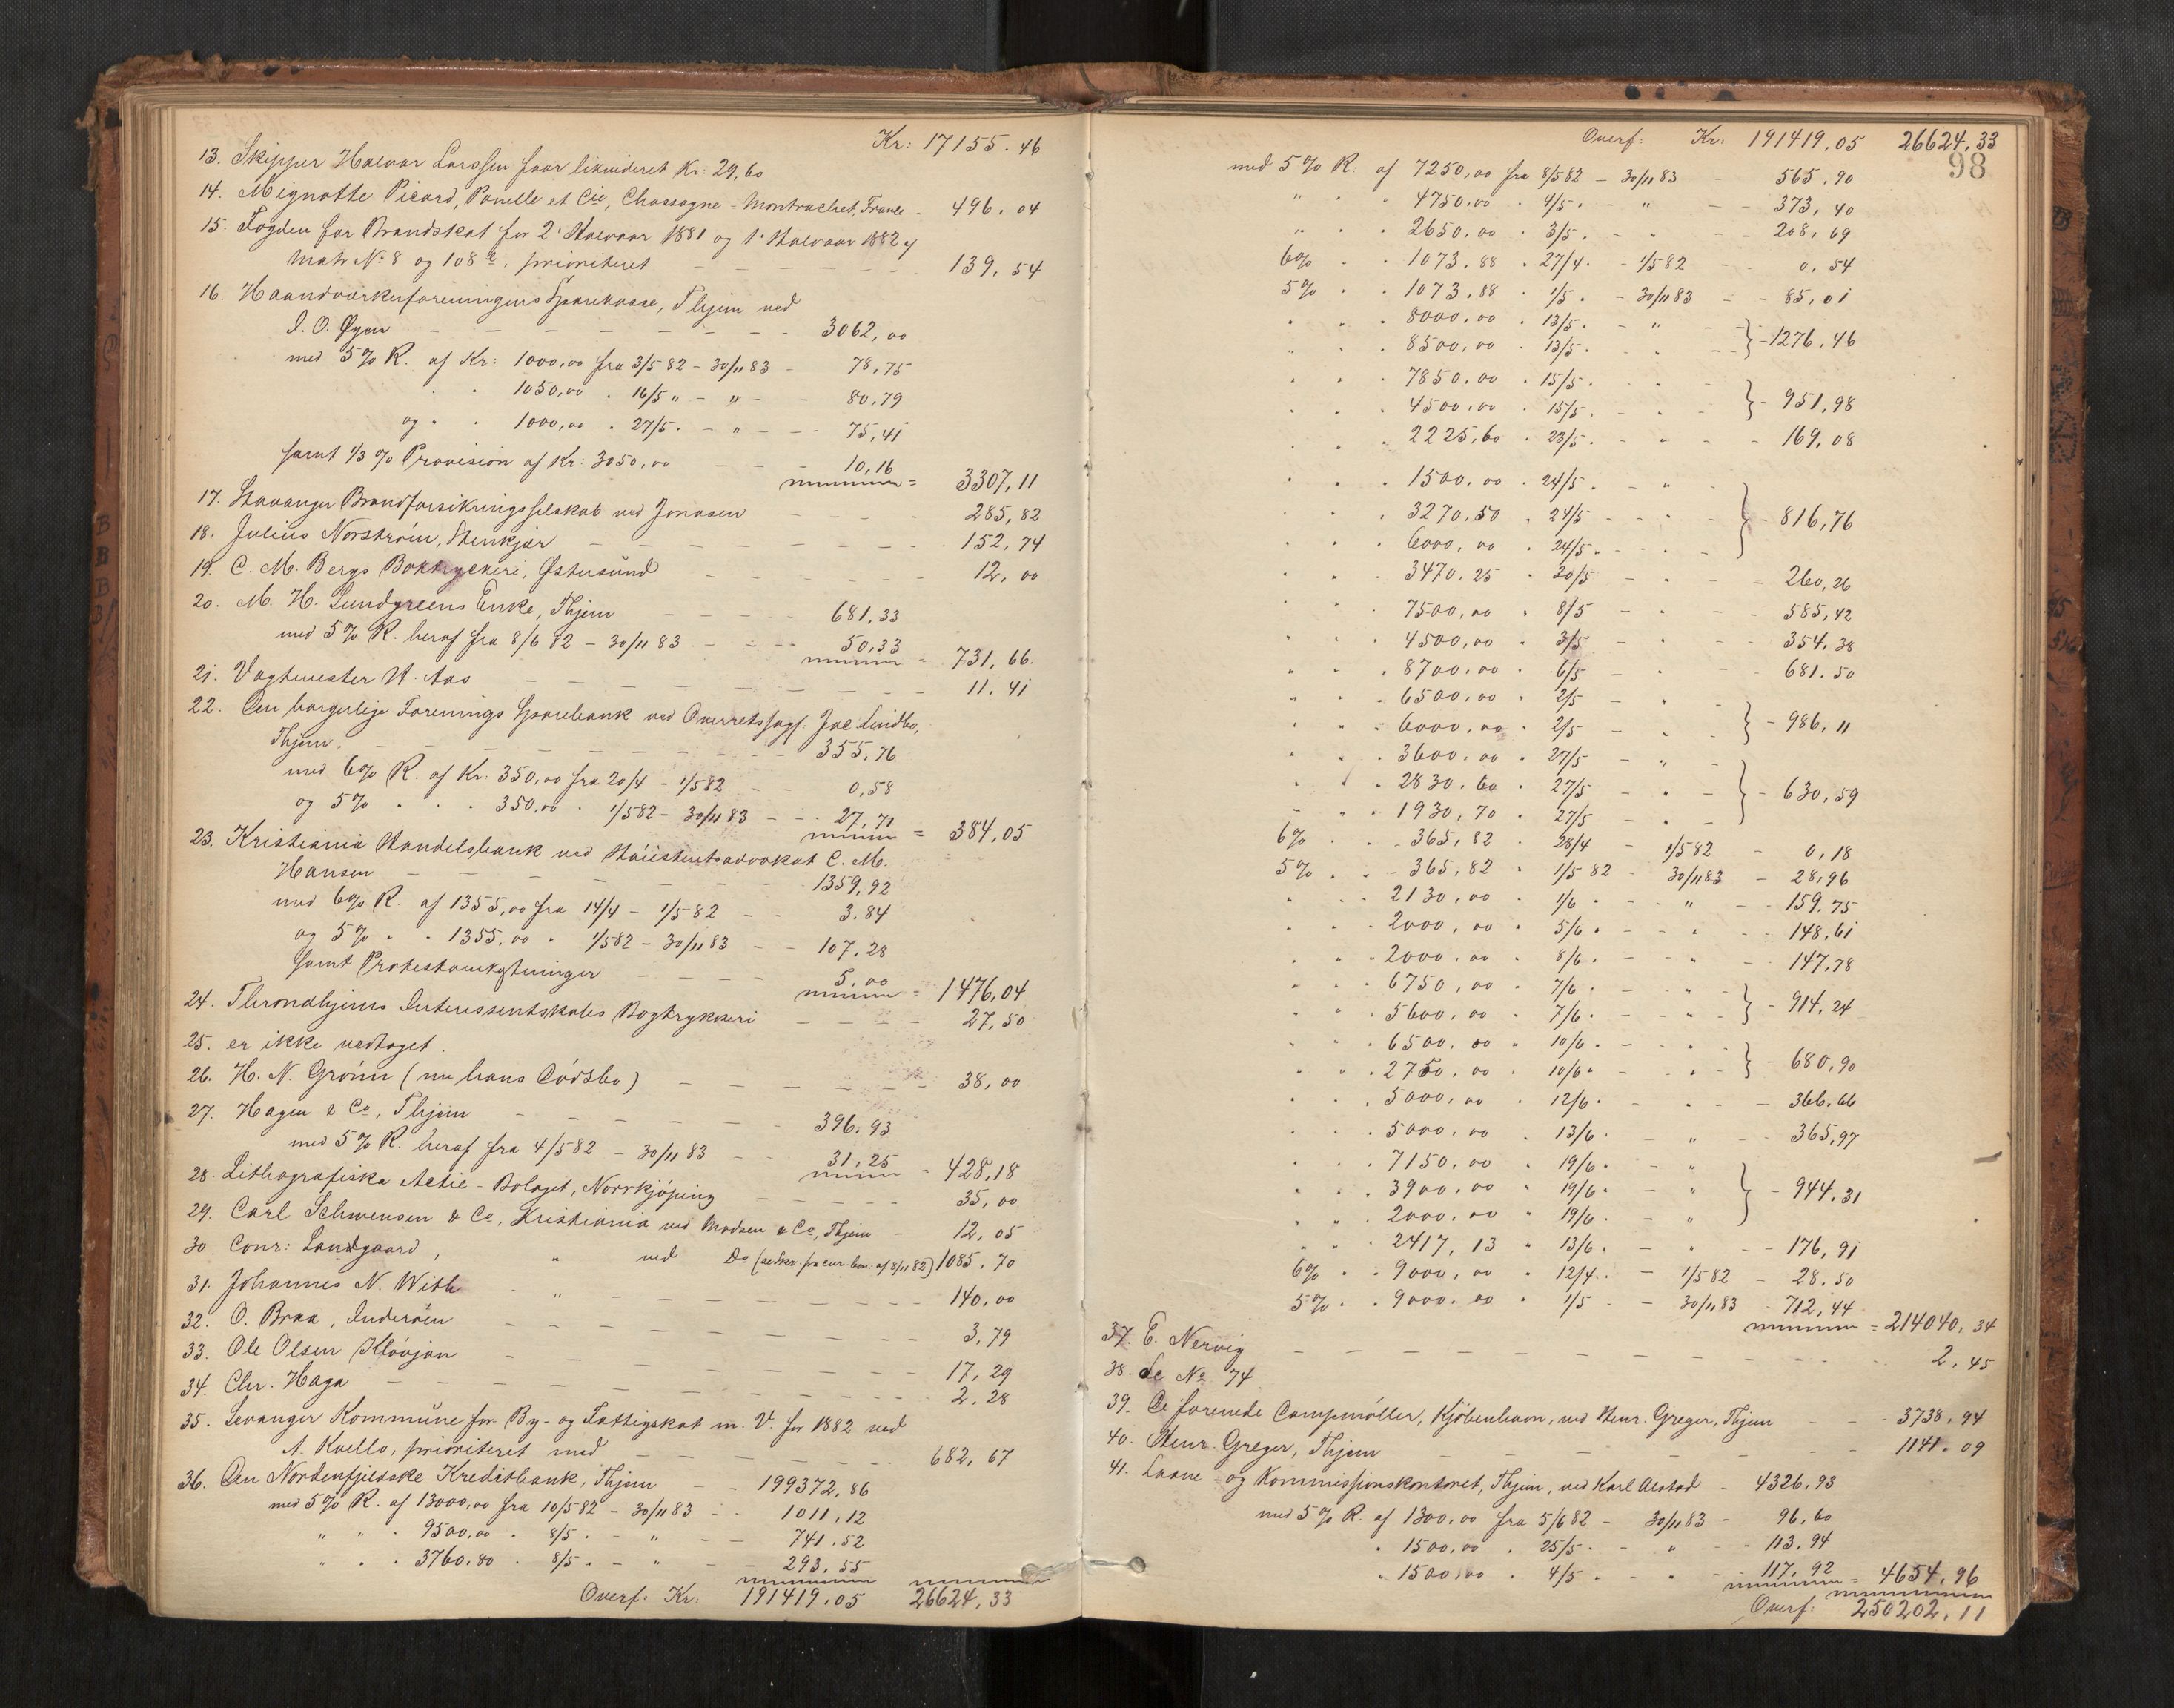 Kr: 17155.46
13. Skipper Halvar Larssen faar likvideret Kr: 29,60
14. Mignotte Picard, Ponelle et Cie, Chassagne-Montrachet, France - 496.04
15. Fogden for Brandskat for 2' Halvaar 1881 og 1' Halvaar 1882 af
Matr No 8 og 108 e, prioriteret - - - 139,54
16. Haandværkerforeningens Sparekasse, Thjem ved
I. O. Øyen - - - 3062,00
med 5% R. af Kr: 1000,00 fra 3/5 82 - 30/11 83 - 78,75
" " 1050,00 " 16/5 " - " - - 80,79
og " " 1000,00 " 27/5 " - " - - 75,41
samt 1/3 % Provision af Kr: 3050,00 - - 10,16 = 3307,11
17. Stavanger Brandforsikringsselskab ved Jonasen - - - 285,82
18. Julius Norström, Stenkjær - - - 152,74
19. C. M. Bergs Boktryckeri, Østersund - - - 12,00
20. M. H. Lundgreens Enke, Thjem - - - 681,33
med 5% R. heraf fra 8/6 82 - 30/11 83 - - 50,33 = 731,66.
21. Vagtmester A. Aas - - - 11.41
22. Den borgerlige Forenings Sparebank ved Overretssagf. Jac Lindbo,
Thjem. - - - 355,76
med 6% R. af Kr: 350,00 fra 20/4 - 1/5 82 - - 0,58
og 5% " " " 350,00 " 1/5 82 - 30/11 83 - - 27,71 = 384,05
23. Kristiania Handelsbank ved Høiesteretsadvokat C. M.
Hansen - - - 1359,92
med 6% R. af 1355,00 fra 14/4 - 1/5 82 - - 3.84
og 5% " " 1355,00 " 1/5 82 - 30/11 83 - - 107.28
samt Protestomkostninger - - - 5,00 = 1476,04
24. Throndhjems Interessentskabs Bogtrykkeri - - - 27,50
25. er ikke vedtaget.
26. H. N. Grönn (nu hans Dödsbo) - - - 38,00
27. Hagen & Co, Thjem - - - 396.93
med 5% R. heraf fra 4/5 82 - 30/11 83 - - 31,25 = 428,18
28. Lithografiska Actie-Bolaget, Norrkjöping - - - 35,00
29. Carl Schwensen & Co, Kristiania ved Madsen & Co, Thjem - 12,05
30. Conr: Landgaard, " ved Do 1085.70
31. Johannes N. With - " - - - 140,00
32. O. Braa, Inderöen - - - 3,79
33. Ole Olsen Klövjan - - - 17,29
34. Chr. Haga - - - 2.28
35. Levanger Kommune for By- og Fattigskat m. V. for 1882 ved
A. Kvello, prioriteret med - - - 682,67
36. Den Nordenfjeldske Kreditbank, Thjem - - 199372,86
med 5% R. af 13000,00 fra 10/5 82 - 30/11 83 - - 1011,12
" " " 9500,00 " 8/5 " - " - - 741.52
" " " 3760.80 " 8/5 " - " - - 293.55
Overf: Kr: 191419.05 26624,33
Overf: Kr: 191419,05 26624,33
98
med 5% R: af 7250,00 fra 8/5 82 - 30/11 83 - 565,90
" " " 4750,00 " 4/5 " - " - - 373,40
" " " 2650,00 " 3/5 " - " - - 208,69
6% " " 1073,88 " 27/4 " - 1/5 82 - 0,54
5% " " 1073,88 " 1/5 " - 30/11 83 - - 85,01
" " " 8000,00 " 13/5 " - " -
" " " 8500,00 " 13/5 " - " - } - 1276,46
" " " 7850,00 " 15/5 " - " -
" " " 4500,00 " 15/5 " - " - } - 951,98
" " " 2225,60 " 23/5 " - " - - 169,08
" " " 1500,00 " 24/5 " - " -
" " " 3270,50 " 24/5 - " - } - 816,76
" " " 6000,00 " 24/5 " - " -
" " " 3470,25 " 30/5 - " - - 260,26
" " " 7500,00 " 8/5 - " - - 585,42
" " " 4500,00 " 3/5 - " - - 354,38
" " " 8700,00 " 6/5 - " - 681.50
" " " 6500,00 " 2/5 - " -
" " " 6000,00 " 2/5 - " - } - 986,11
" " " 3600,00 " 27/5 - " -
" " " 2830.60 " 27/5 - " - } - 630,59
" " " 1930,70 " 27/5 - " -
6% " " 365,82 " 28/4 - 1/5 82 - 0,18
5% " " 365,82 " 1/5 82 - 30/11 83 - 28,96
" " " 2130,00 " 1/6 " - " - - 159.75
" " " 2000,00 " 5/6 " - " - - 148,61
" " " 2000,00 " 8/6 " - " - 147,78
" " " 6750,00 " 7/6 " - " -
" " " 5600,00 " 7/6 " - " - } - 914,24
" " " 6500,00 " 10/6 " - " -
" " " 2750,00 " 10/6 " - " - } - 680,90
" " " 5000,00 " 12/6 " - " - - 366.66
" " " 5000,00 " 13/6 " - " - - 365,97
" " " 7150,00 " 19/6 " - " -
" " " 3900,00 " 19/6 " - " - } - 944,31
" " " 2000,00 " 19/6 " - " -
" " " 2417,13 " 13/6 " - " - - 176,91
6% " " 9000,00 " 12/4 " - 1/5 82 - 28.50
5% " " 9000,00 " 1/5 " - 30/11 83 - 712,44 = 214040,34
37. E. Nervig - - - 2.45
38. se No 74
39. De forenede Dampmöller, Kjöbenhavn, ved Henr. Greger, Thjem - - 3738,94
40. Henr. Greger, Thjem - - - 1141.09
41. Laane- og Kommissionskontoret, Thjem, ved Karl Aastad - 4326,93
med 5% R. af 1300,00 fra 5/6 82 - 30/11 83 - 96,60
" 1500,00 " 25/5 " - " - - 113,94
" 1500,00 " 4/5 " - " - - 117,92 = 4654,96
Overf: 250202.11